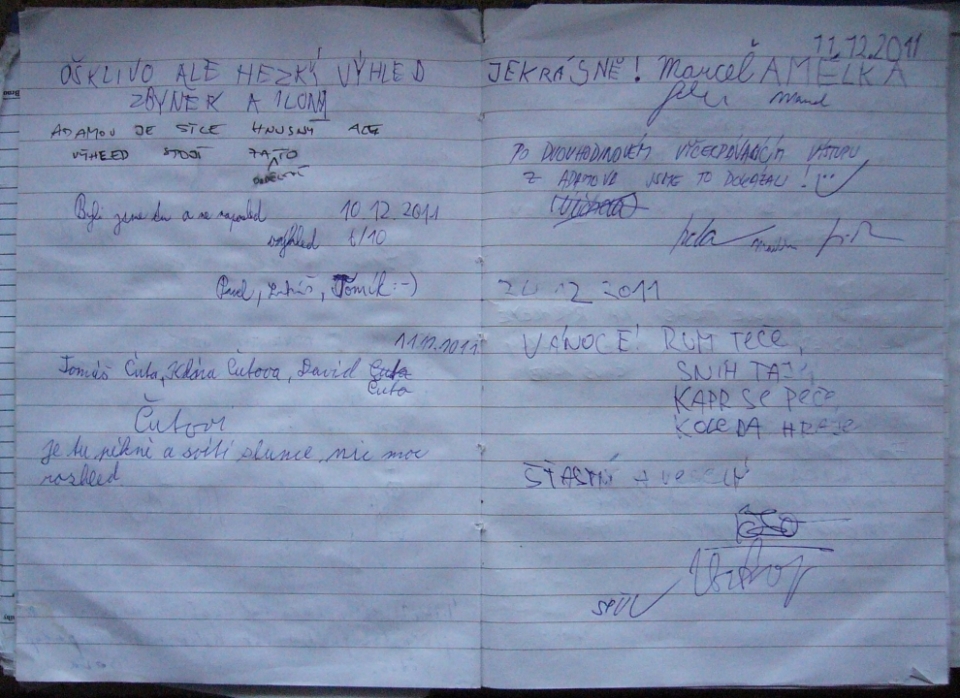 OŠKLIVO ALE HEZKÝ VÝHLED
ZBYNEK A ILONA
ADAMOV JE SICE HNUSNÝ ALE
VÝHLED STOJÍ ZATO
Byli jsme tu a ne naposled 10.12.2011
výhled 6/10
Pavel, Lukáš, Tomík :-)
11.12.2011
Tomáš Čuta, Klára Čutova, David Čuta
Čuta
Čutovi
je tu pěkně a svítí slunce, nic moc
rozhled
11.12.2011
JE KRÁSNĚ! Marcel AMÉLKA
PO DVOUHODINOVÉM VYČERPÁVAJÍCÍM VÝSTUPU
Z ADAMOVA JSME TO DOKÁZALI!
12 2011
VÁNOCE! RUM TEČE,
SNIH TAJE,
KAPR SE PEČE
KOLEDA HRAJE
ŠŤASTNÝ A VESELÝ